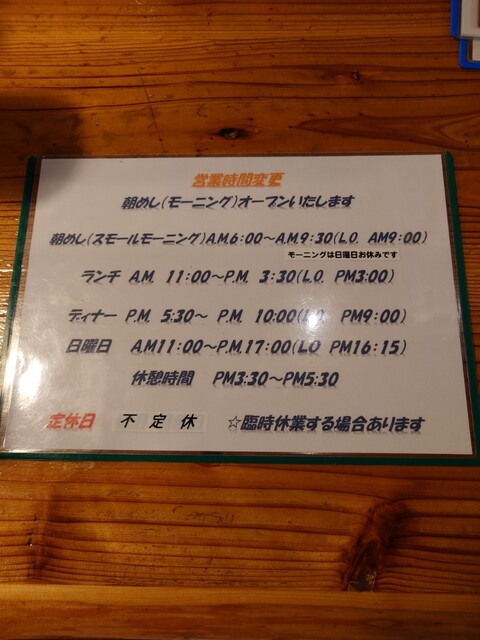 営業時間変更
朝めし(モーニング)オープンいたします
朝めし(スモールモーニング)A.M.6:00～A.M.9:30(L.O. AM9:00)
モーニングは日曜日お休みです
ランチ A.M. 11:00～P.M. 3:30(L.O. PM3:00)
ディナー P.M. 5:30～ P.M. 10:00(L.O. PM9:00)
日曜日 A.M11:00～P.M.17:00(LO PM16:15)
休憩時間 PM3:30～PM5:30
定休日 不定休 ☆臨時休業する場合あります